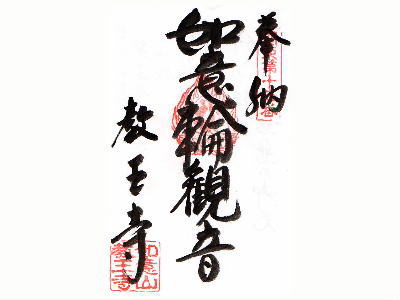 奉納
如意輪觀音
教王寺
如意山
教王寺